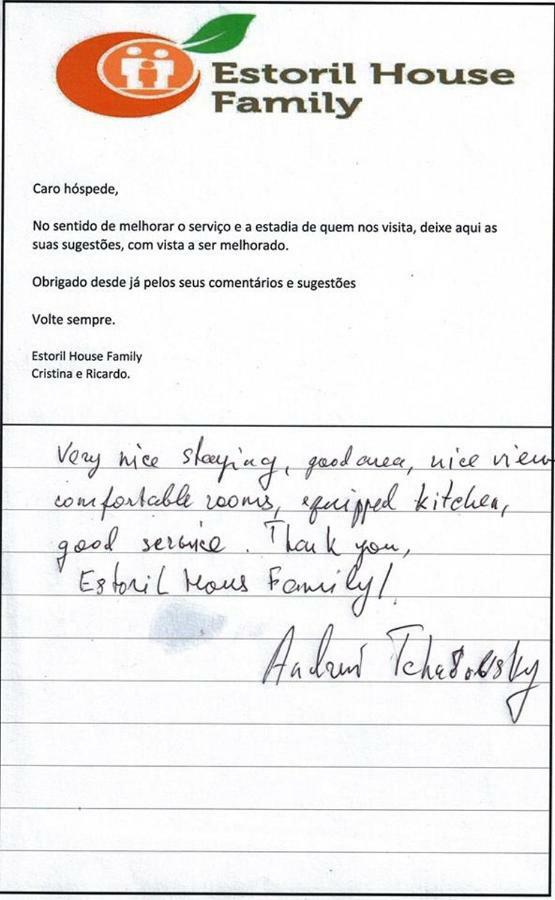 Estoril House
Family
Caro hóspede,
No sentido de melhorar o serviço e a estadia de quem nos visita, deixe aqui as
suas sugestões, com vista a ser melhorado.
Obrigado desde já pelos seus comentários e sugestões
Volte sempre.
Estoril House Family
Cristina e Ricardo.
Very nice staying, good area, nice view
comfortable rooms, equipped kitchen,
good service. Thank you,
Estoril Hous Family!